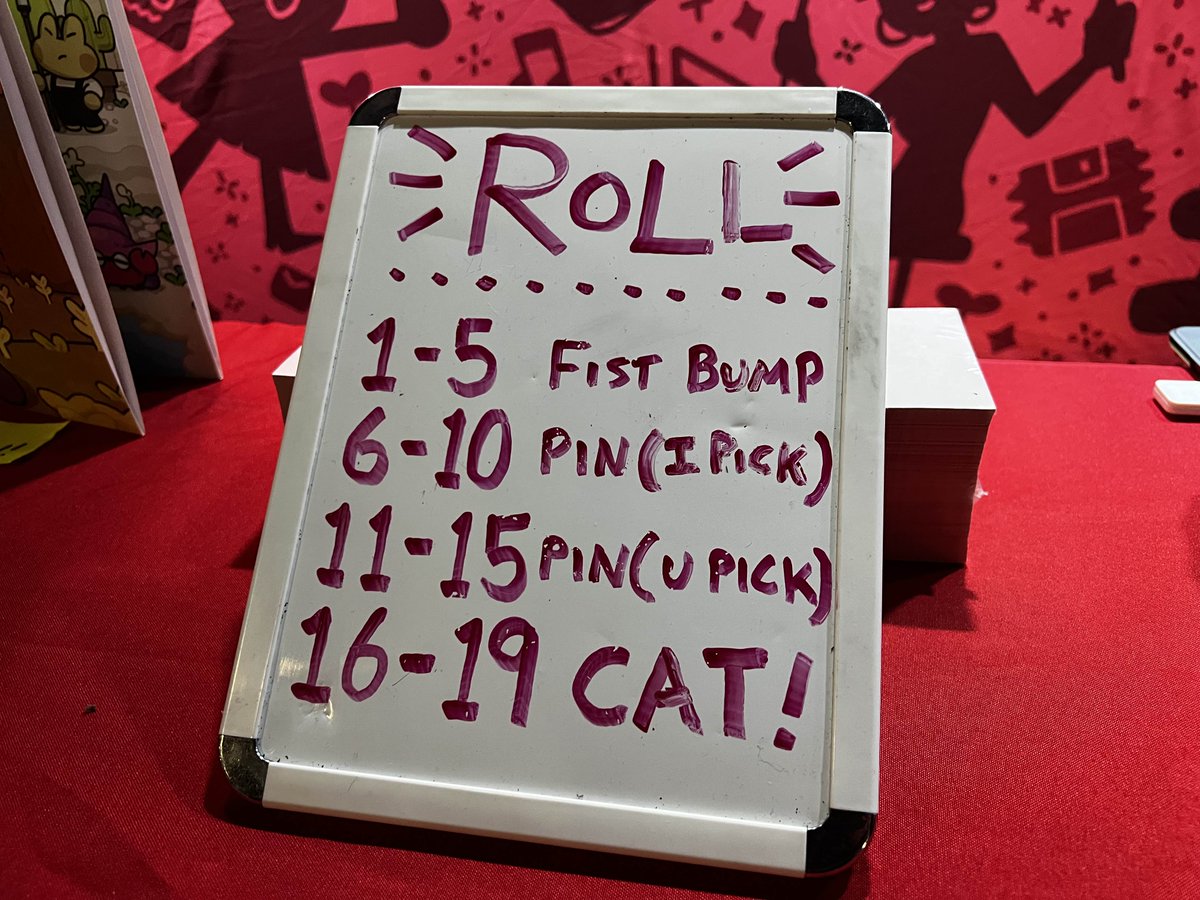 ROLL
1-5 FIST BUMP
6-10 PIN (I PICK)
11-15 PIN (U PICK)
16-19 CAT!